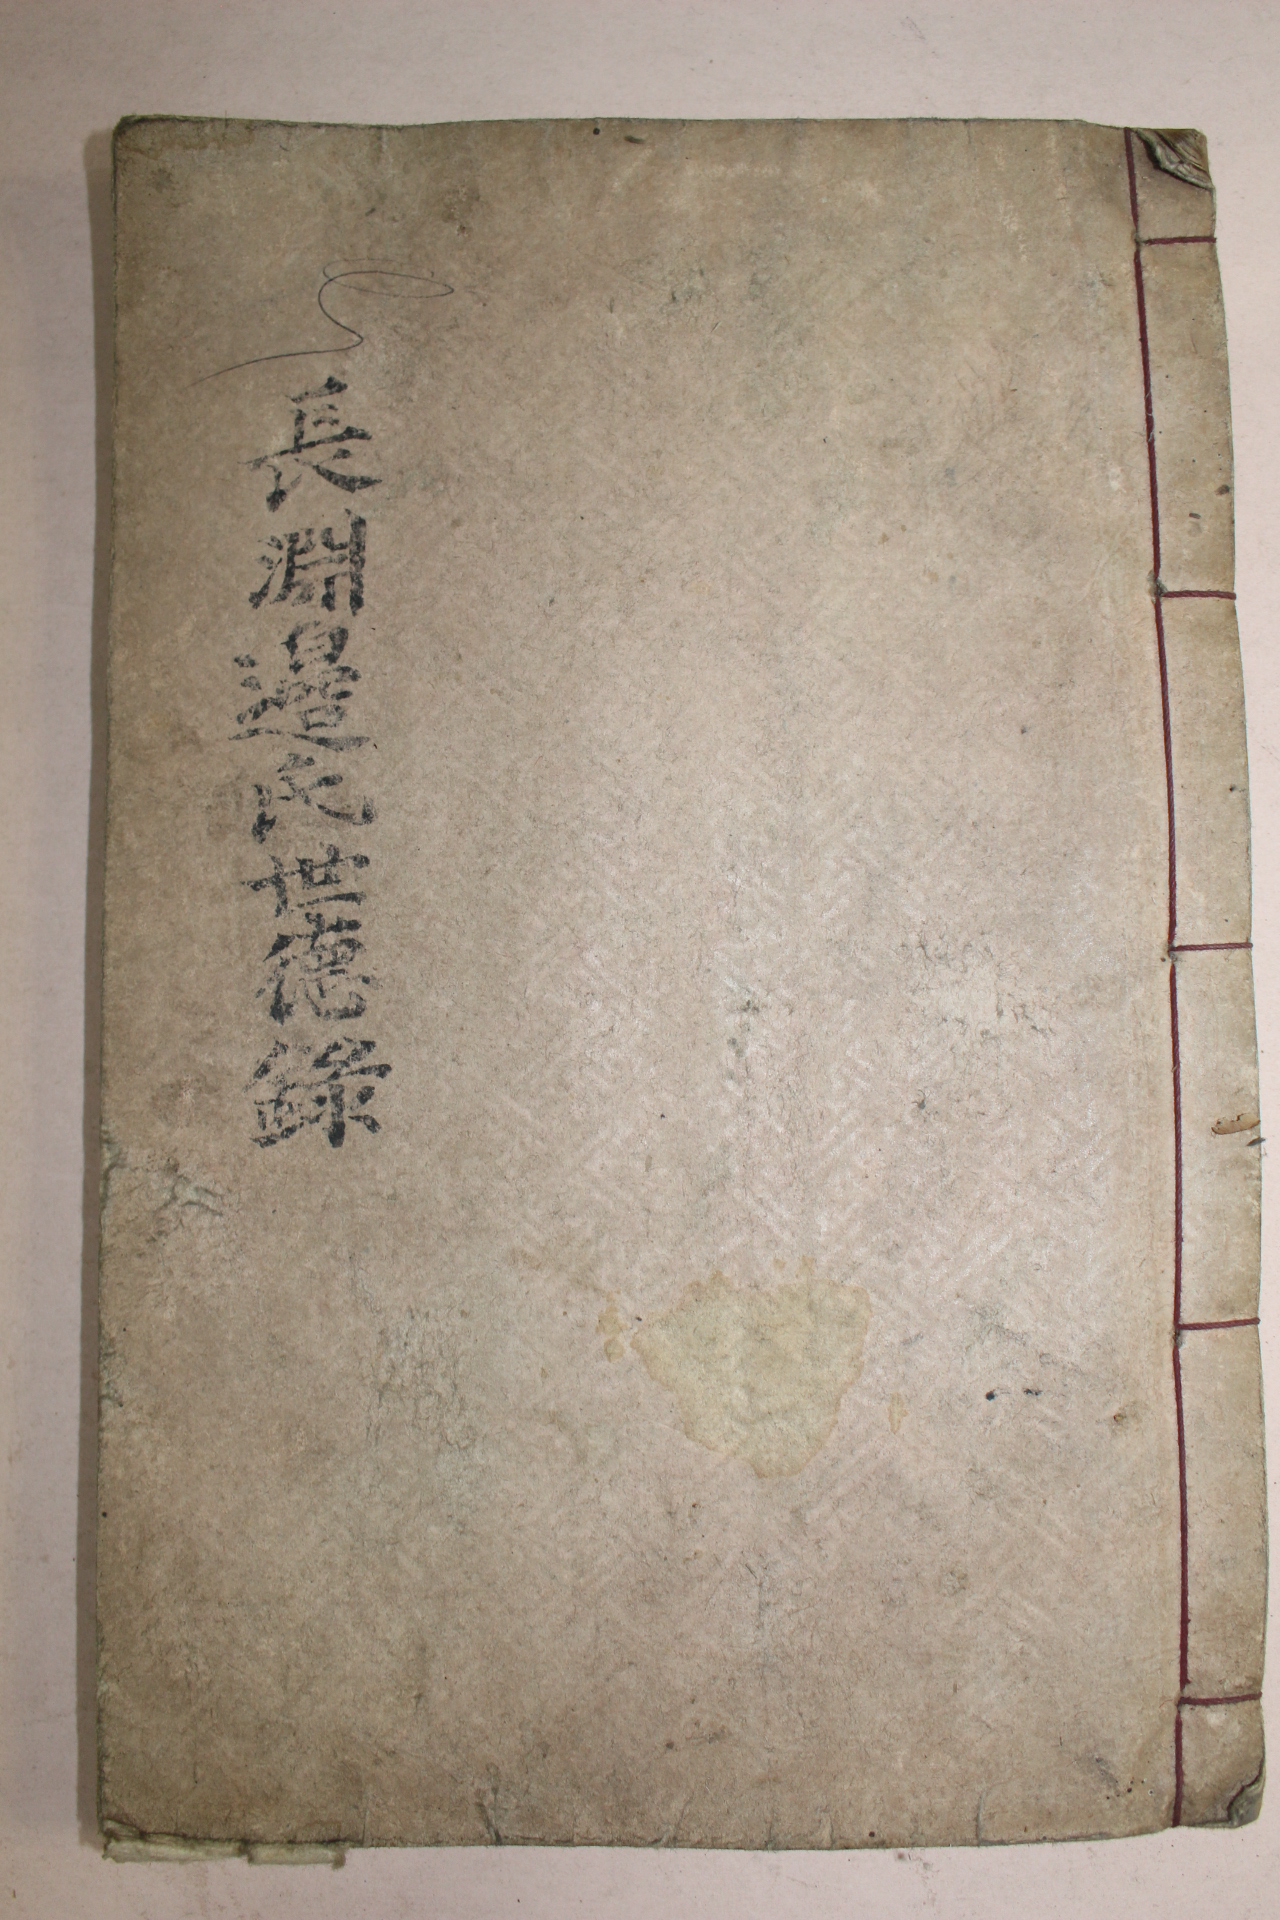 長淵邊氏世德錄